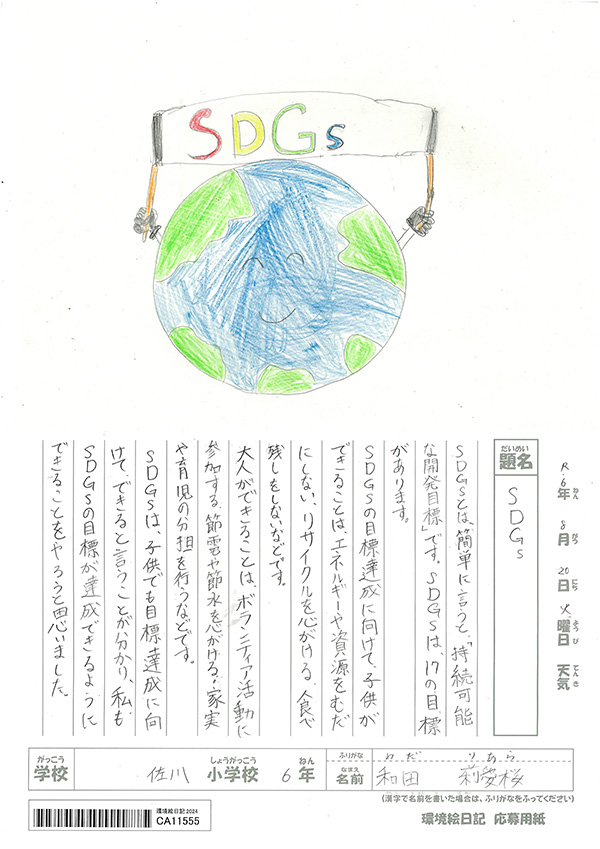 SDGs
R.6年ねん 8月がつ 20日にち 火曜日ようび 天気てんき
題名だいめい SDGs
SDGsとは、簡単に言うと、「持続可能
な開発目標」です。SDGsは、17の目標
があります。
SDGsの目標達成に向けて、子供が
できることは、エネルギーや資源をむだ
にしない、リサイクルを心がける、食べ
残しをしないなどです。
大人ができることは、ボランティア活動に
参加する、節電や節水を心がける、家実
や育児の分担を行うなどです。
SDGsは、子供でも目標達成に向
けて、できると言うことが分かり、私も
SDGsの目標が達成できるように
できることをやろうと思いました。
がっこう しょうがっこう ねん ふりがな わだ りあら
学校 佐川 小学校 6年 なまえ 名前 和田 莉愛桜
(漢字で名前を書いた場合は、ふりがなをふってください)
環境絵日記2024
CA11555
環境絵日記 応募用紙